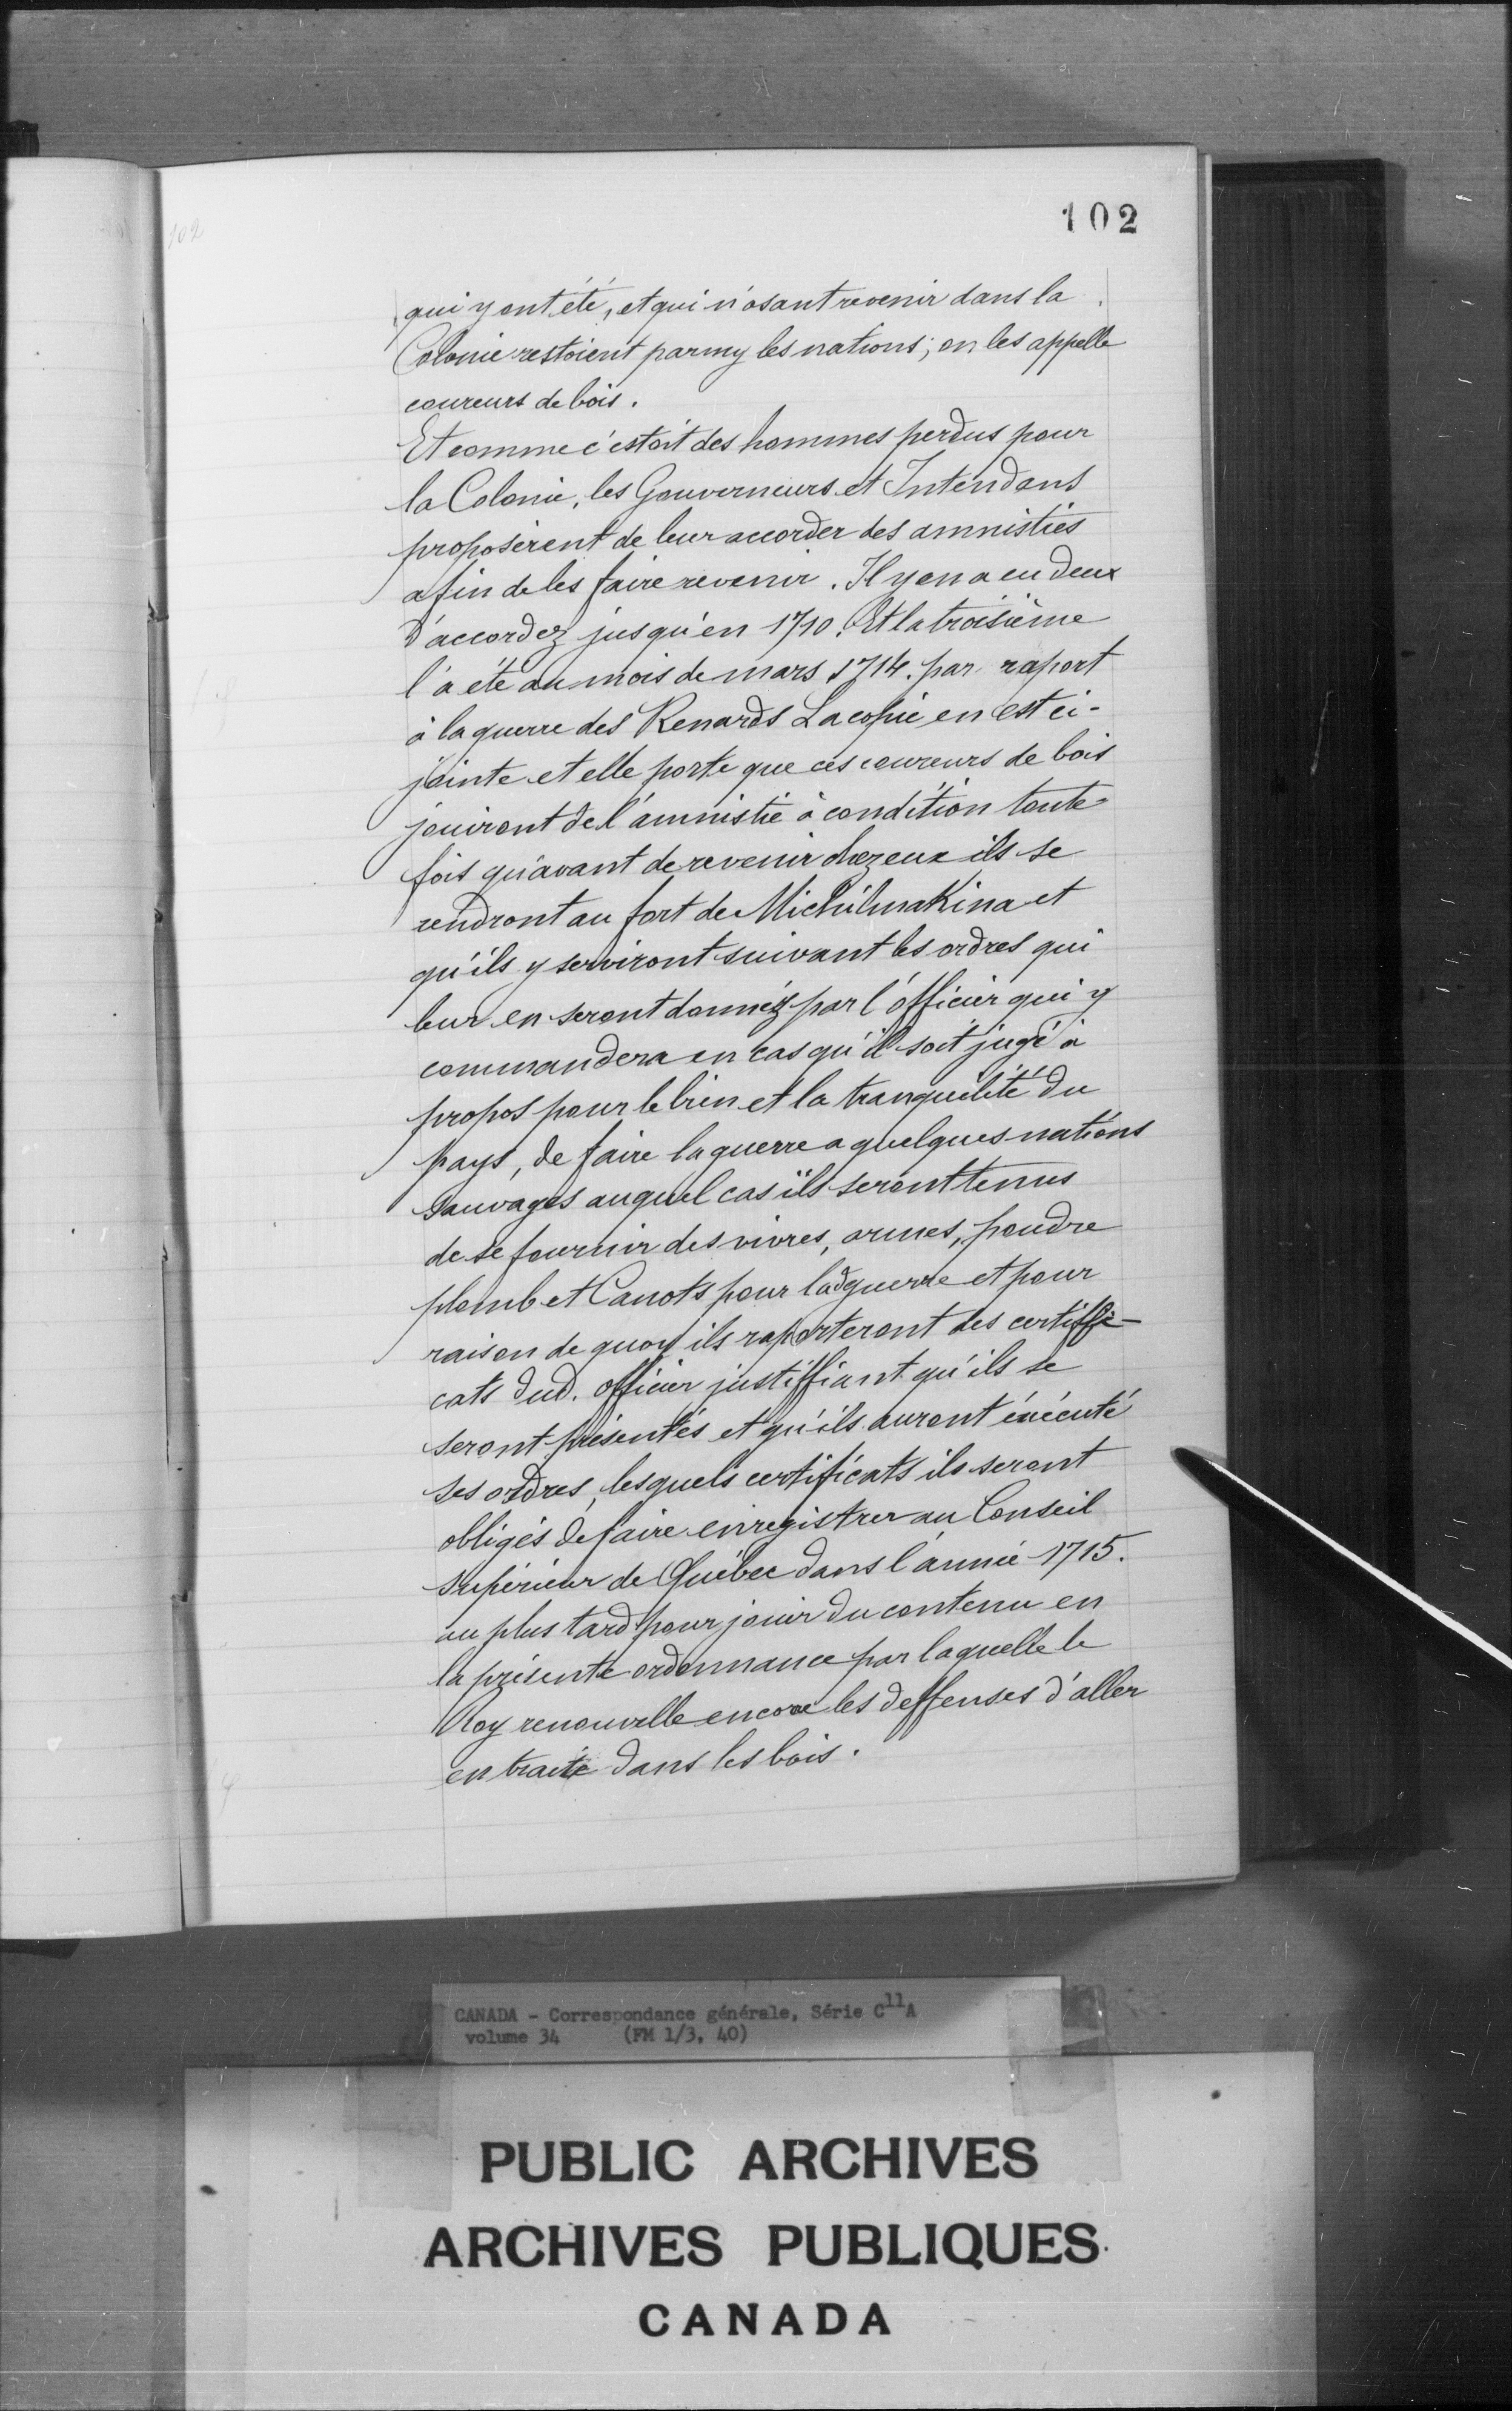 102
102
qui y ont été, et qui n'osant revenir dans la
Colonie restoient parmy les nations; on les appelle
coureurs de bois.
Et comme c'estoit des hommes perdus pour
la Colonie, les Gouverneurs et Intendans
proposèrent de leur accorder des amnisties
afin de les faire revenir. Il y en a eu deux
d'accordez jusqu'en 1710. Et la troisième
l'a été au mois de mars 1714. par raport
à la guerre des Renards La copie en est ci-
jointe et elle porte que ces coureurs de bois
jouiront de l'amnistie à condition toute-
fois qu'avant de revenir chez eux ils se
rendront au fort de Michilmakina et
qu'ils y serviront suivant les ordres qui
leur en seront donnéz par l'officier qui y
commandera en cas qu'il soit jugé à
propos pour le bien et la tranquilité du
pays, de faire la guerre a quelques nations
sauvages auquel cas ils seront tenus
de se fournir des vivres, armes, poudre
plomb et Canots pour lad guerre et pour
raison de quoy ils raporteront des certiffi-
cats dud. officier justiffiant qu'ils se
seront présentés et qu'ils auront éxécuté
ses ordres, lesquels certificats ils seront
obligés de faire enregistrer au Conseil
supérieur de Québec dans l'année 1715.
au plus tard pour jouir du contenu en
la présente ordonnance par laquelle le
Roy renouvelle encore les deffenses d'aller
en traite dans les bois.
CANADA - Correspondance générale, Série C11A
volume 34 (FM 1/3, 40)
PUBLIC ARCHIVES
ARCHIVES PUBLIQUES
CANADA